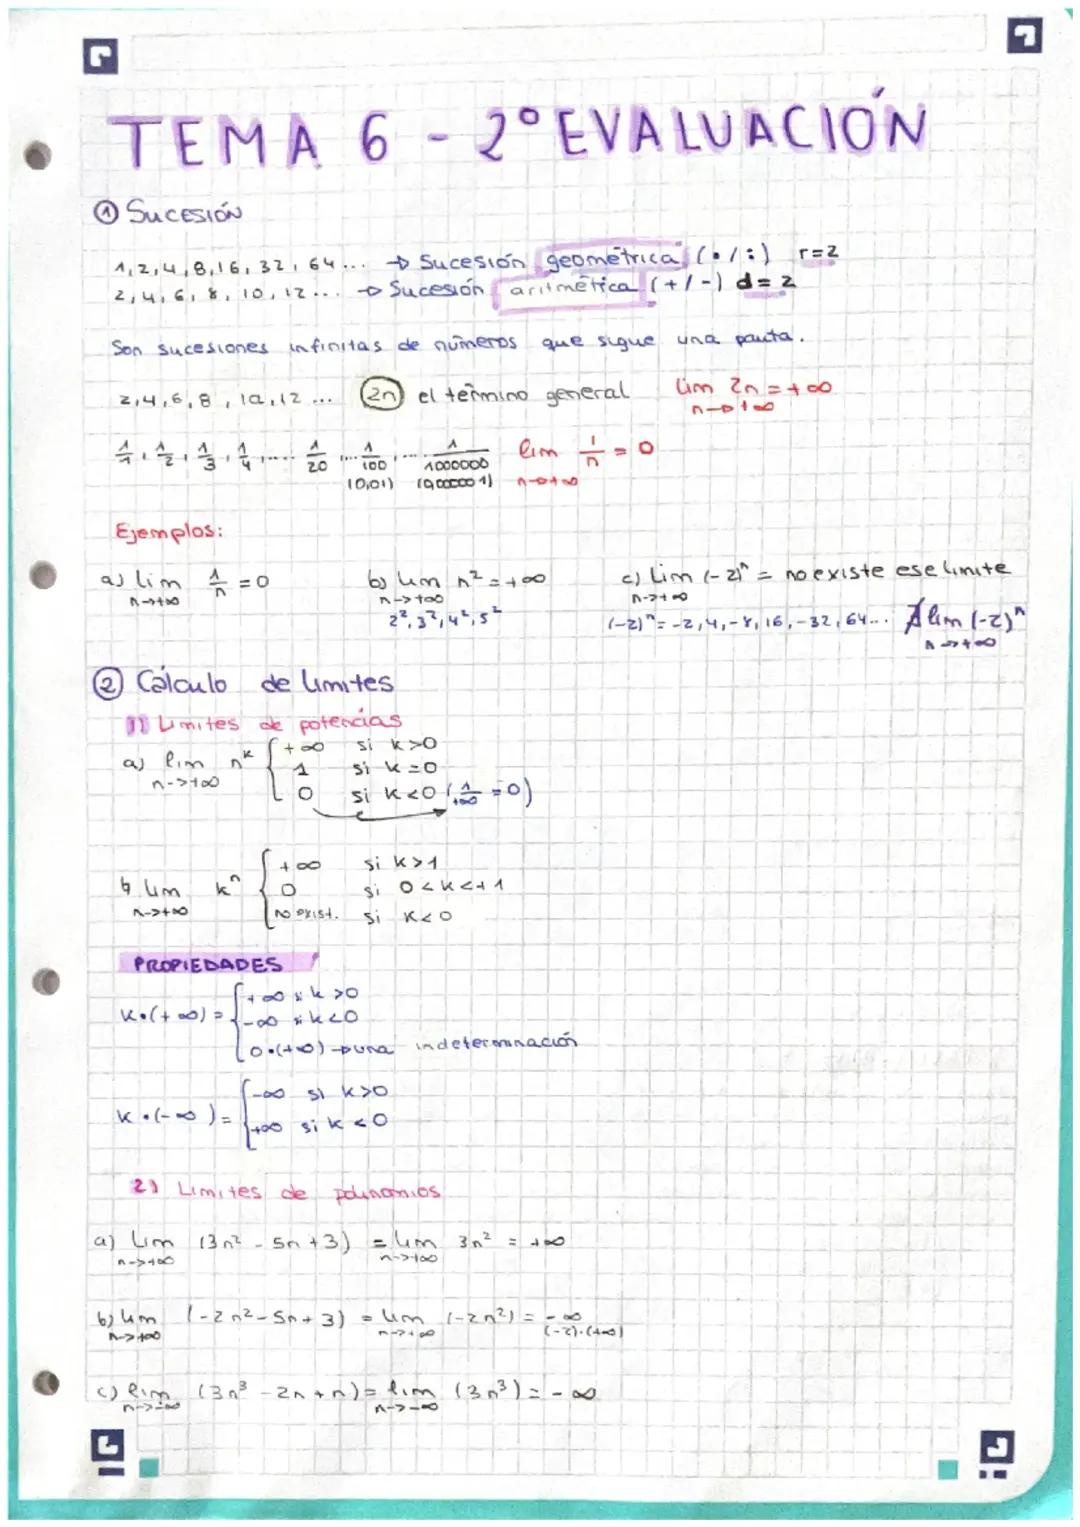 TEMA 6 - 2º EVALUACIÓN
① SUCESIÓN
1, 2, 4, 8, 16, 32, 64... → Sucesión geométrica (•/:) r=2
2, 4, 6, 8, 10, 12... → Sucesión aritmética (+/-) d=2
Son sucesiones infinitas de números que sigue una pauta.
2, 4, 6, 8, 10, 12 ... 2n el término general lim 2n = +∞
n→+∞
1/1, 1/2, 1/3, 1/4, .... 1/20 ,... 1/100 ,... 1/1000000 lim 1/n = 0
(0,01) (0,000001) n→+∞
Ejemplos:
a) lim 1/n = 0 b) lim n² = +∞ c) lim (-2)ⁿ = no existe ese límite
n→+∞ n→+∞ n→+∞
2², 3², 4², 5² (-2)ⁿ = -2, 4, -8, 16, -32, 64... ∄ lim (-2)ⁿ
n→+∞
② Cálculo de límites
1) Límites de potencias
a) lim nᵏ { +∞ si k>0
n→+∞ 1 si k=0
0 si k<0 (1/+∞ = 0)
b) lim kⁿ { +∞ si k>1
n→+∞ 0 si 0<k<+1
no exist. si k<0
PROPIEDADES
K•(+∞) = { +∞ si k>0
-∞ si k<0
0•(+∞) → una indeterminación
K•(-∞) = { -∞ si k>0
+∞ si k<0
2) Límites de polinomios
a) lim (3n² - 5n + 3) = lim 3n² = +∞
n→+∞ n→+∞
b) lim (-2n² - 5n + 3) = lim (-2n²) = -∞
n→+∞ n→+∞ (-2)·(+∞)
c) lim (3n³ - 2n + n) = lim (3n³) = -∞
n→-∞ n→-∞